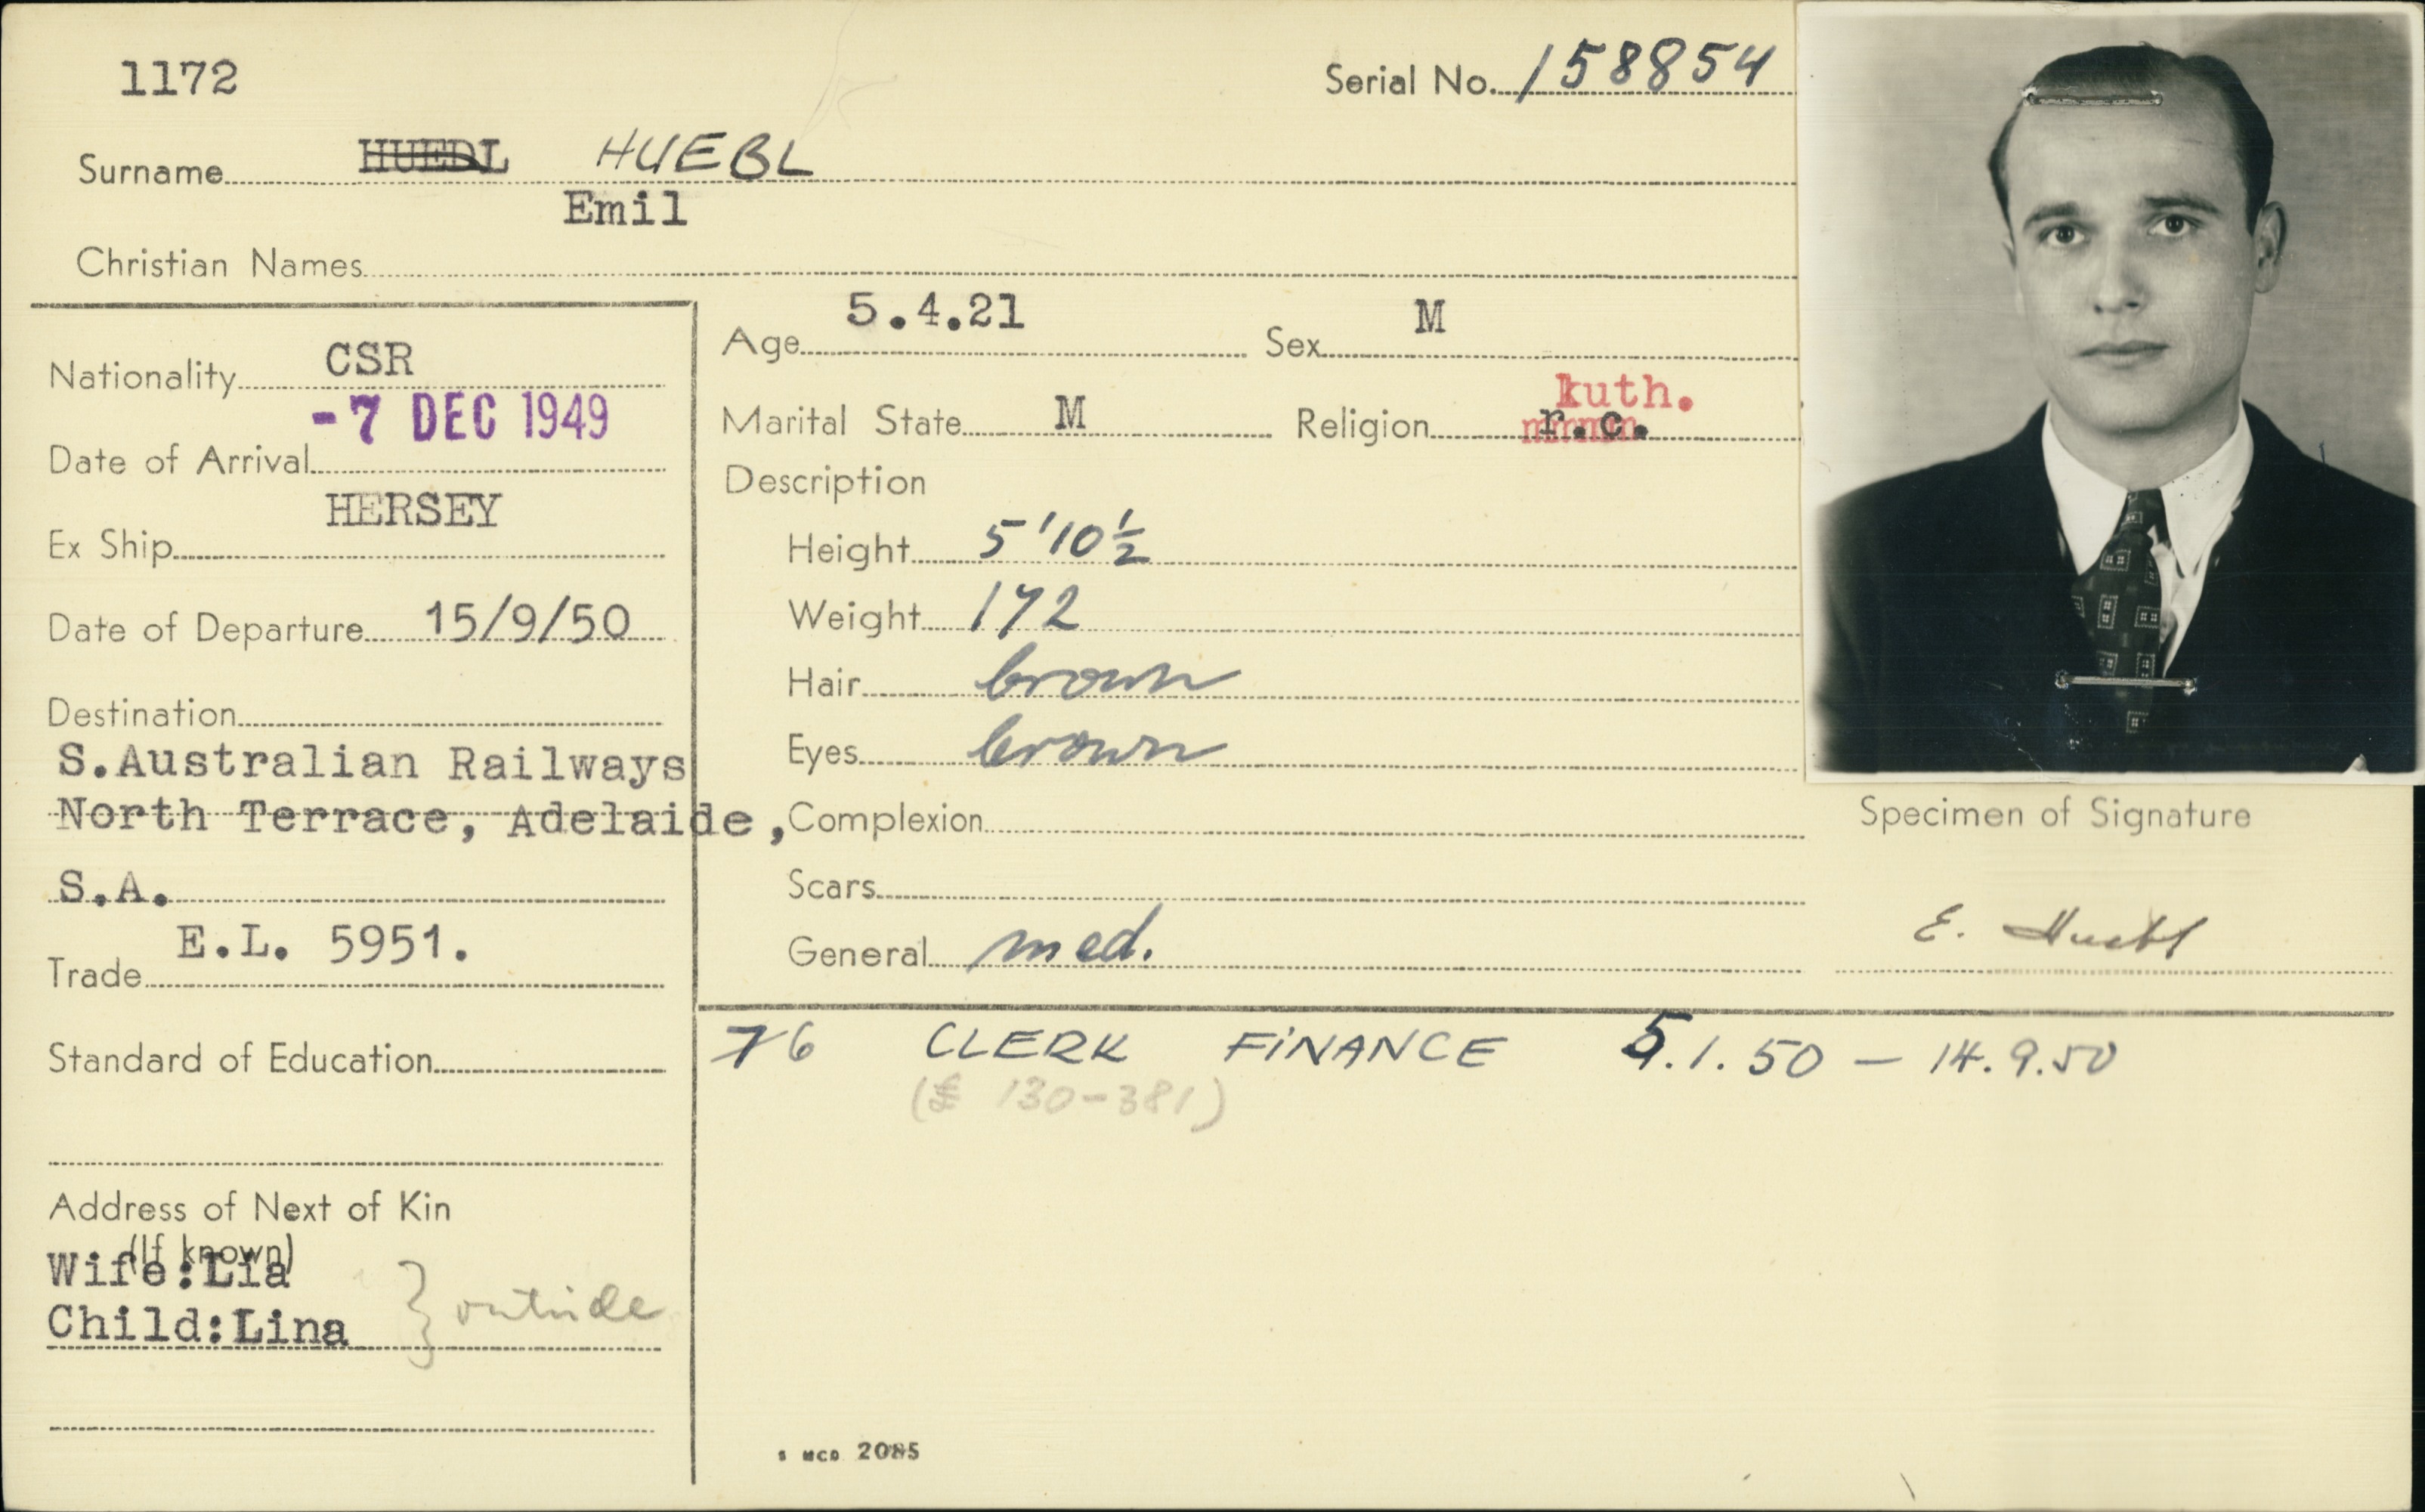 1172
Serial No. 158854
Surname HUEDL HUEBL
Emil
Christian Names
Nationality CSR
Date of Arrival -7 DEC 1949
Ex Ship HERSEY
Date of Departure 15/9/50
Destination
S.Australian Railways
North Terrace, Adelaide,
S.A.
Trade E.L. 5951.
Standard of Education
Address of Next of Kin
(If known)
Wife:Lia
Child:Lina } outside
Age 5.4.21 Sex M
Marital State M Religion r.c.
Description
Height 5'10½
Weight 172
Hair brown
Eyes brown
Complexion
Scars
General med.
Specimen of Signature
E. Huebl
76 CLERK FINANCE 5.1.50 – 14.9.50
(£ 130-381)
2085